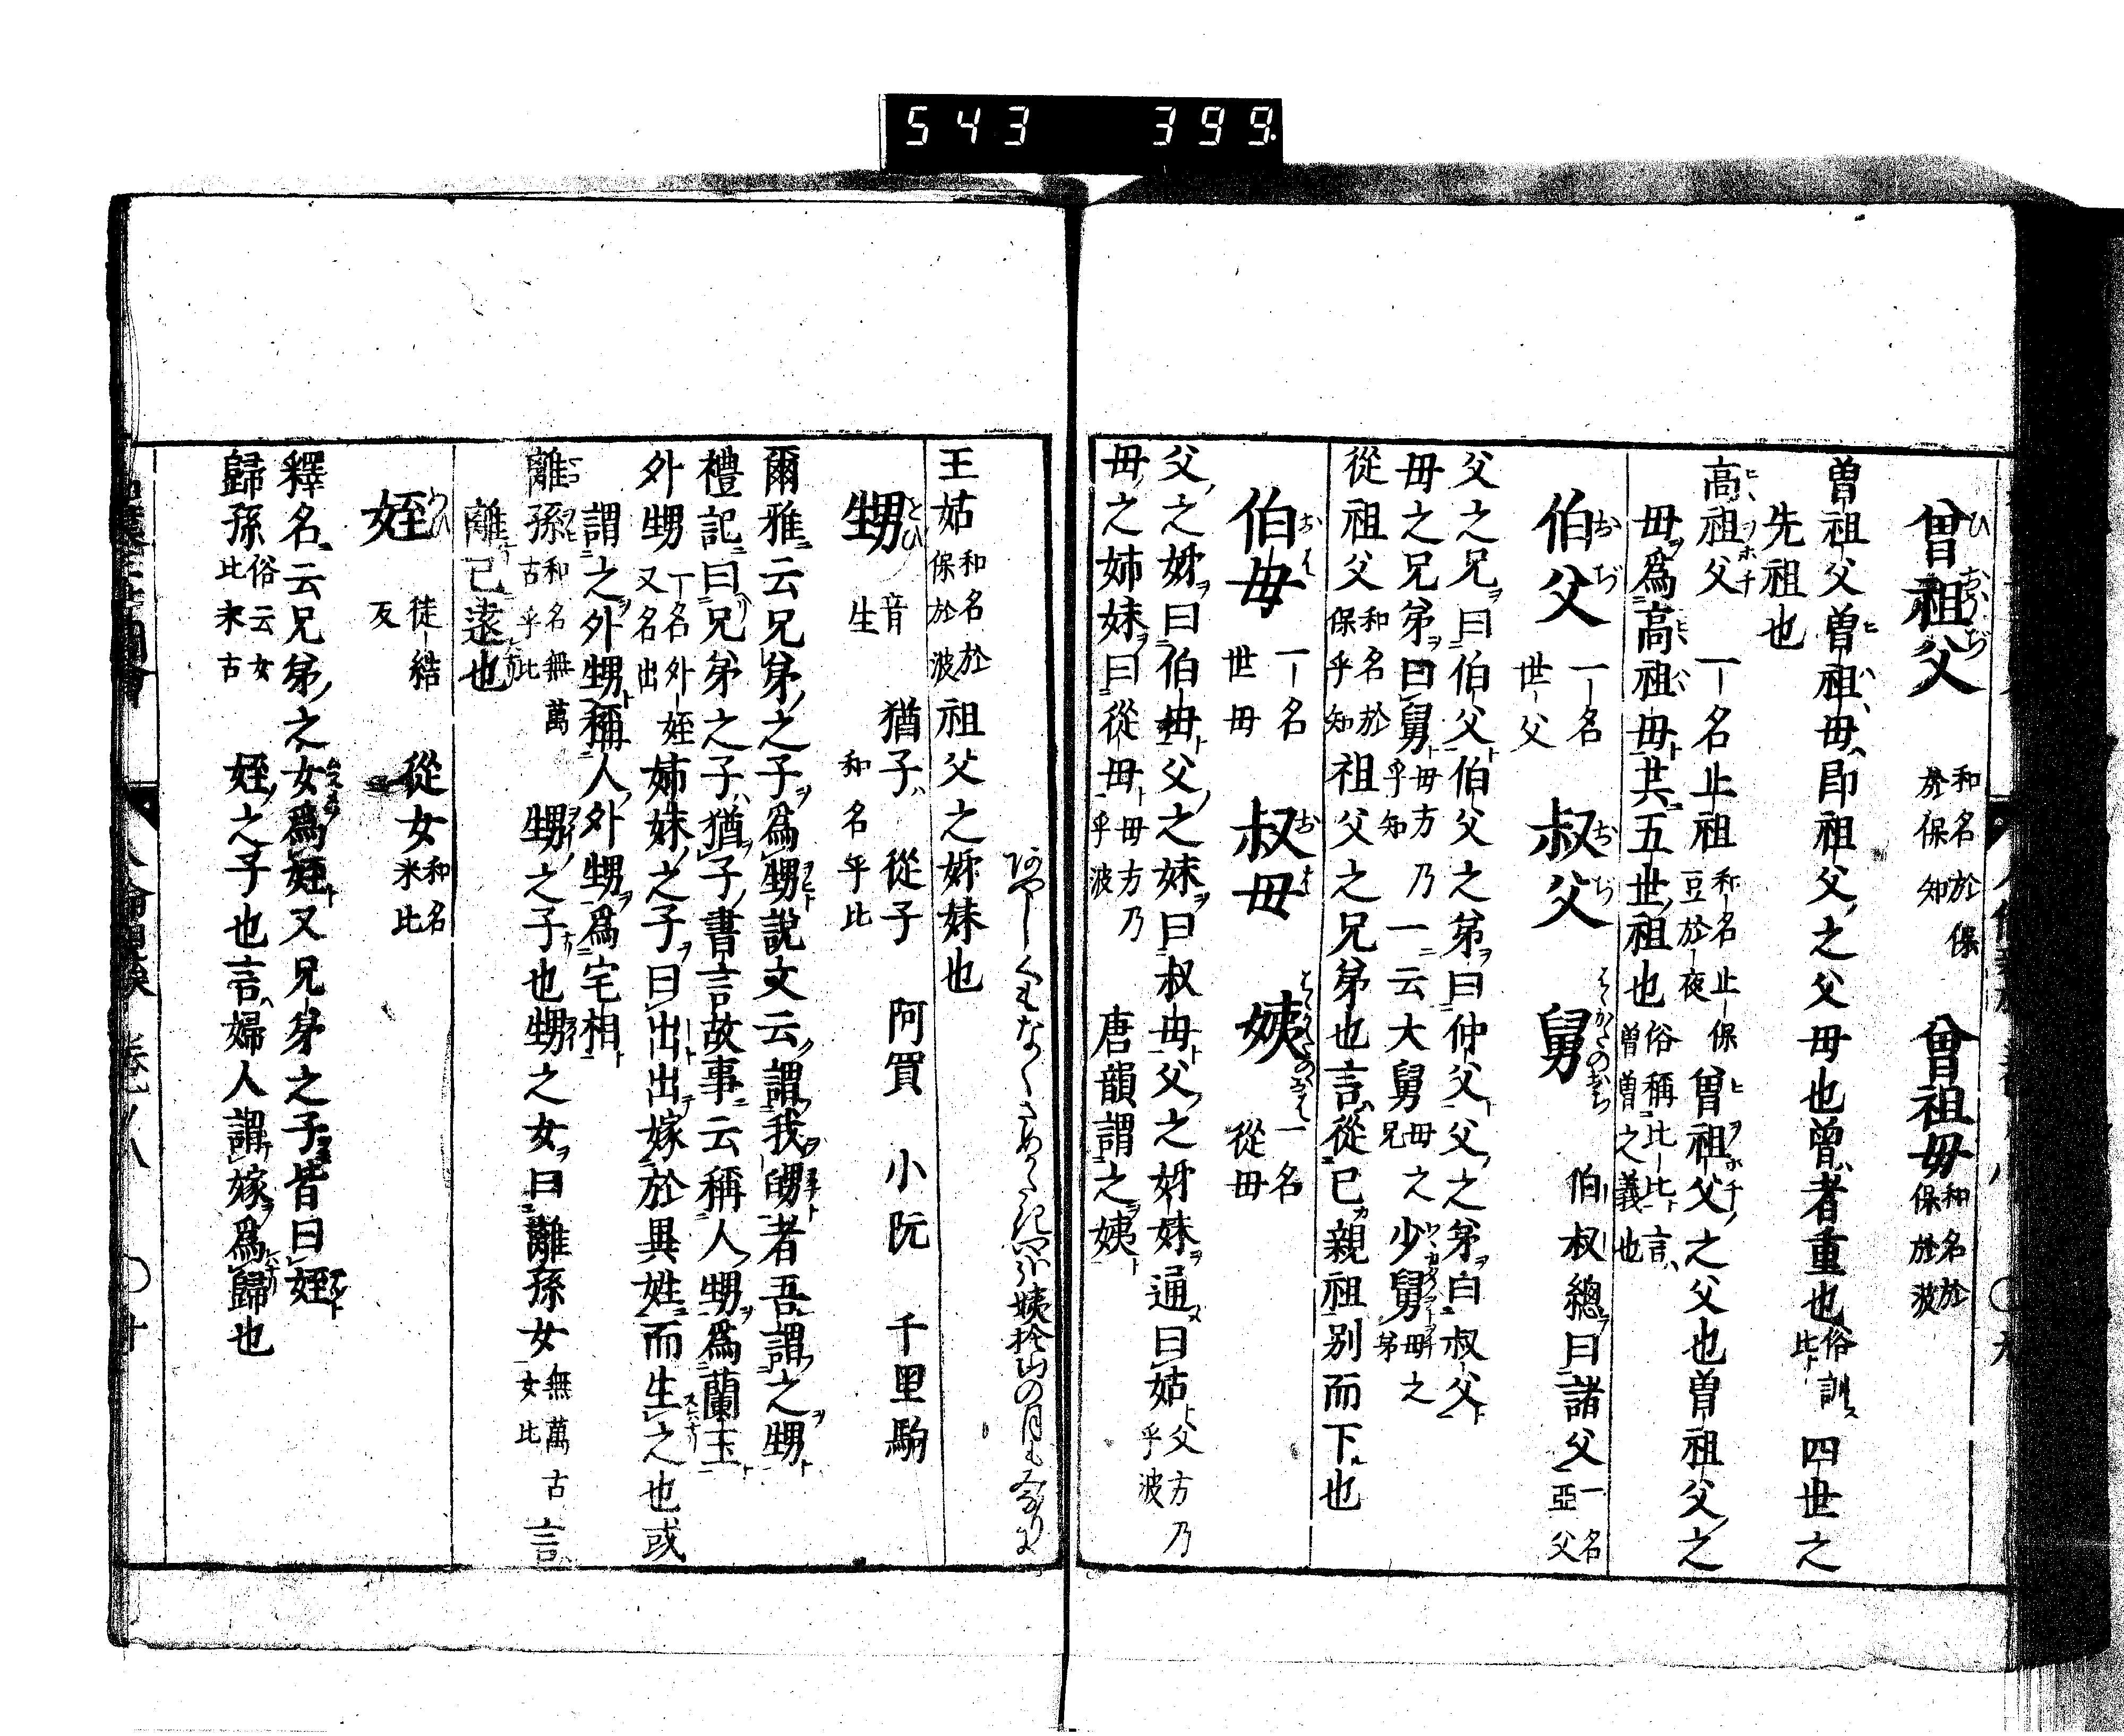 543 399
曾祖父 和名於保於保知 曾祖母 和名於保於波
曽祖父曽祖母即祖父之父母也曾者重也 俗訓比 四世之
先祖也
高祖父 一名止祖 和名止保豆於夜 曾祖父之父也曽祖父之
母爲高祖母共五世祖也 俗稱比比言曽曽之義也
伯父 一名世父 叔父 舅 伯叔總曰諸父 一名亞父
父之兄曰伯父伯父之弟曰仲父父之弟曰叔父
母之兄弟曰舅 母方乃乎知 一云大舅 母之兄 少舅 母之弟
從祖父 和名於保乎知 祖父之兄弟也言從已親祖別而下也
伯母 一名世母 叔母 姨 一名從母
父之姉曰伯母父之妹曰叔母父之姉妹通曰姑 父方乃乎波
母之姉妹曰從母 母方乃乎波 唐韻謂之姨
姨捨山の月も
王姑 和名於保於波 祖父之姉妹也
甥 音生 猶子 和名乎比 從子 阿買 小阮 千里駒
爾雅云兄弟之子爲甥說文云謂我舅者吾謂之甥
禮記曰兄弟之子猶子書言故事云稱人甥爲蘭玉
外甥 一名外姪又名出 姉妹之子曰出出嫁於異姓而生之也或
謂之外甥稱人外甥爲宅相
離孫 和名無萬古乎比 甥之子也甥之女曰離孫女 無萬古女比 言
離已遠也
姪 徒結反 從女 和名米比
釋名云兄弟之女爲姪又兄弟之子皆曰姪
歸孫 俗云女比米古 姪之子也言婦人謂嫁爲歸也